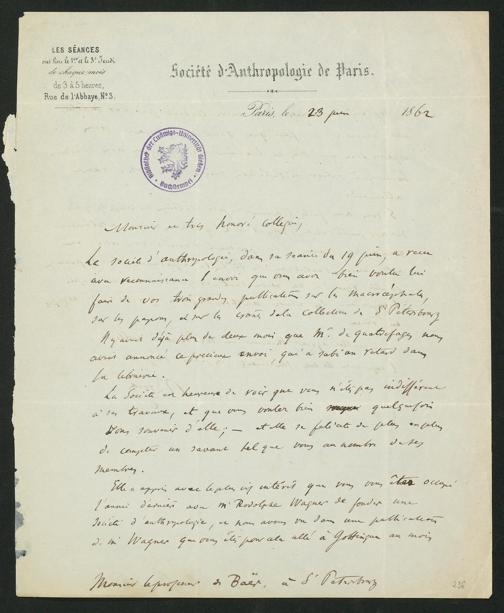 LES SÉANCES
ont lieu le 1er et le 3e Jeudi
de chaque mois
de 3 à 5 heures,
Rue de l'Abbaye, No 3.
Société d'Anthropologie de Paris.
Paris, le 23 juin 1862
Bibliothek der Ludwigs-Universität Giessen
Monsieur et très honoré collègue,
La société d'anthropologie, dans sa séance du 19 juin, a reçu
avec reconnaissance l'envoi que vous avez bien voulu lui
faire de vos trois grandes publications sur les macrocéphales,
sur les papous, et sur les crânes de la collection de St Petersbourg
Il y avait déjà plus de deux mois que Mr. de Quatrefages nous
avait annoncé ce précieux envoi, qui a subi un retard dans
la librairie.
La Société est heureuse de voir que vous n'êtes pas indifférent
à ses travaux, et que vous voulez bien quelquefois
vous souvenir d'elle; — et elle se félicite de plus en plus
de compter un savant tel que vous au nombre de ses
membres.
Elle a appris avec le plus vif intérêt que vous vous êtes occupé
l'année dernière avec Mr Rodolphe Wagner de fonder une
Société d'anthropologie, et nous avons vu dans une publication
de Mr Wagner que vous êtes pour cela allé à Gottingue au mois
Monsieur le professeur de Baër, à St Petersbourg